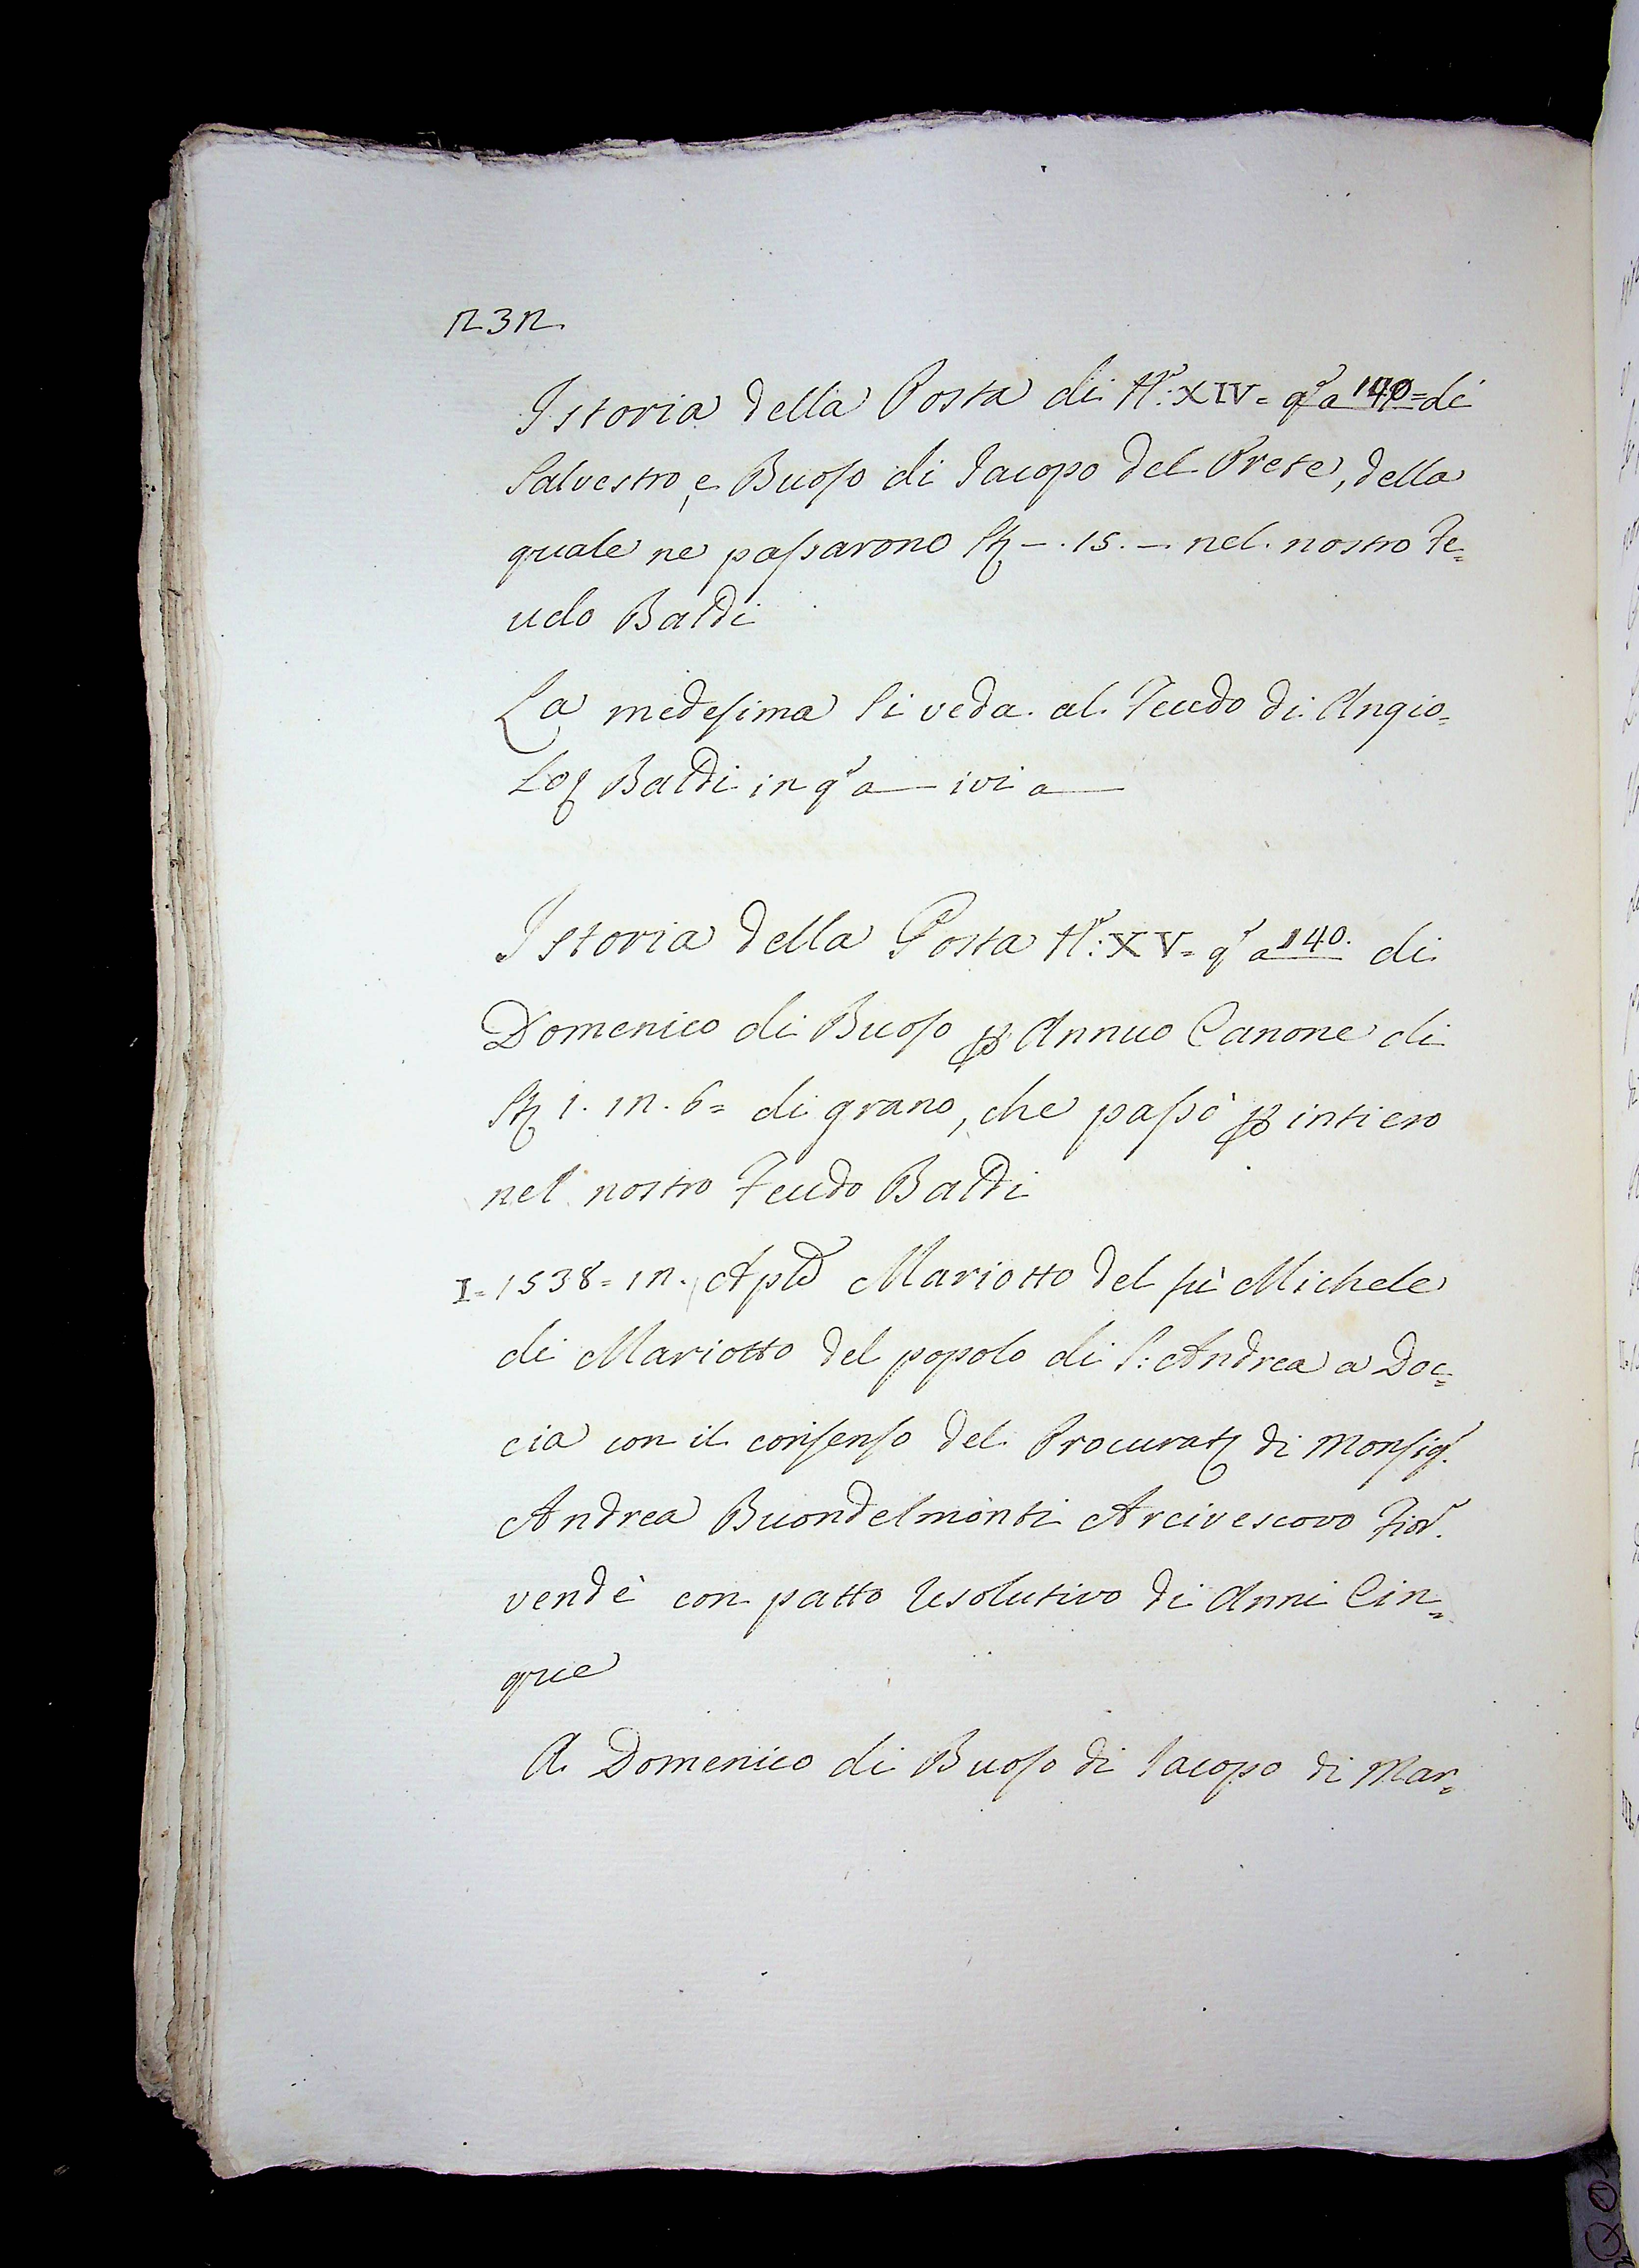 232.
Istoria della Posta di N.º XIV= q.ª a 140= di
Salvestro, e Buoso di Jacopo del Prete, della
quale ne passarono St. —. 15. —. nel nostro Fe=
udo Baldi
La medesima si veda al Feudo di Angio=
lo Baldi in q.ª a — ivi a —
Istoria della Posta N.º XV= q.ª a 140. di
Domenico di Buoso p Annuo Canone di
St. 1. 12. 6= di grano, che passò p intiero
nel nostro Feudo Baldi
I= 1538= 12. Aple Mariotto del fù Michele
di Mariotto del popolo di S: Andrea a Doc=
cia con il consenso del Procurat. di Monsig.r
Andrea Buondelmonti Arcivescovo Fior.
vendè con patto resolutivo di Anni Cin=
que
A Domenico di Buoso di Jacopo di Mar=